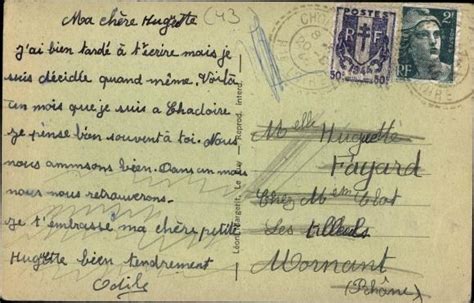 Ma chère Huguette
C43
J'ai bien tardé à t'écrire mais je
suis décidée quand même. Voilà
un mois que je suis a Chadoire
je pense bien souvent à toi. Nous
nous ammsons bien. Dans un mois
nous nous retrouverons.
Je t'embrasse ma chère petite
Huguette bien tendrement
Odile
Léon Margerit, Le Puy — Reprod. interd.
POSTES
RF
50c 1944 50c
2F
RF
Melle Huguette
Fayard
Chez Me
Les tilleuls
Mornant
(Rhône)